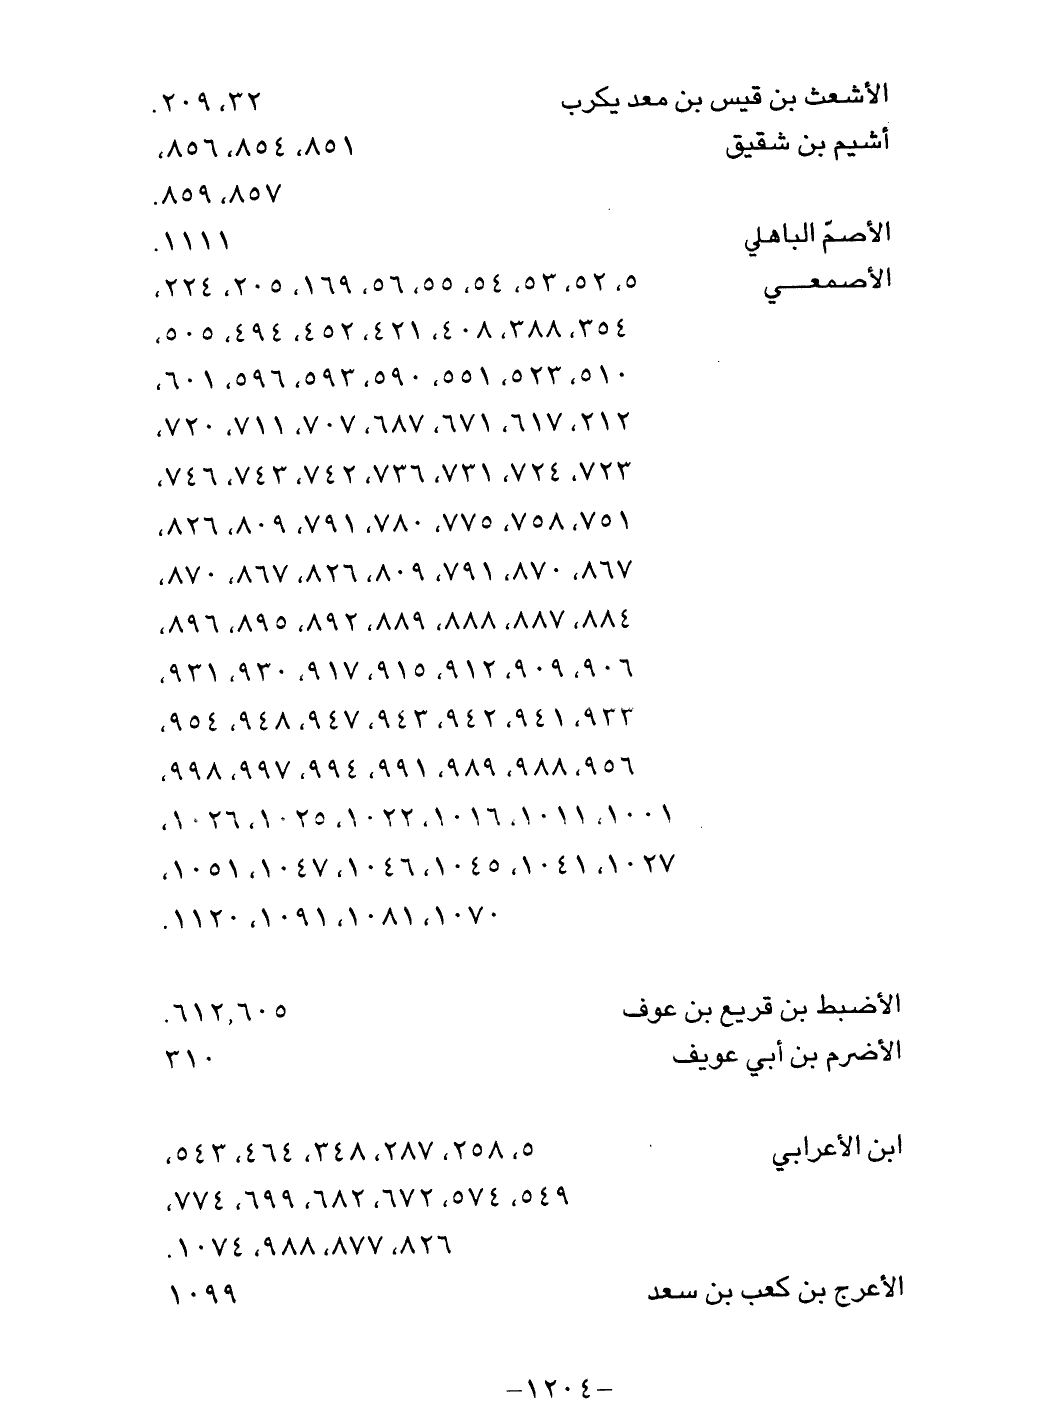 الأشعث بن قيس بن معد يكرب ٣٢، ٢٠٩.
أشيم بن شقيق ٨٥١، ٨٥٤، ٨٥٦،
٨٥٧، ٨٥٩.
الأصمّ الباهلي ١١١١.
الأصمعـــي ٥، ٥٢، ٥٣، ٥٤، ٥٥، ٥٦، ١٦٩، ٢٠٥، ٢٢٤،
٣٥٤، ٣٨٨، ٤٠٨، ٤٢١، ٤٥٢، ٤٩٤، ٥٠٥،
٥١٠، ٥٢٣، ٥٥١، ٥٩٠، ٥٩٣، ٥٩٦، ٦٠١،
٢١٢، ٦١٧، ٦٧١، ٦٨٧، ٧٠٧، ٧١١، ٧٢٠،
٧٢٣، ٧٢٤، ٧٣١، ٧٣٦، ٧٤٢، ٧٤٣، ٧٤٦،
٧٥١، ٧٥٨، ٧٧٥، ٧٨٠، ٧٩١، ٨٠٩، ٨٢٦،
٨٦٧، ٨٧٠، ٧٩١، ٨٠٩، ٨٢٦، ٨٦٧، ٨٧٠،
٨٨٤، ٨٨٧، ٨٨٨، ٨٨٩، ٨٩٢، ٨٩٥، ٨٩٦،
٩٠٦، ٩٠٩، ٩١٢، ٩١٥، ٩١٧، ٩٣٠، ٩٣١،
٩٣٣، ٩٤١، ٩٤٢، ٩٤٣، ٩٤٧، ٩٤٨، ٩٥٤،
٩٥٦، ٩٨٨، ٩٨٩، ٩٩١، ٩٩٤، ٩٩٧، ٩٩٨،
١٠٠١، ١٠١١، ١٠١٦، ١٠٢٢، ١٠٢٥، ١٠٢٦،
١٠٢٧، ١٠٤١، ١٠٤٥، ١٠٤٦، ١٠٤٧، ١٠٥١،
١٠٧٠، ١٠٨١، ١٠٩١، ١١٢٠.
الأضبط بن قريع بن عوف ٦٠٥,٦١٢.
الأضرم بن أبي عويف ٣١٠
ابن الأعرابي ٥، ٢٥٨، ٢٨٧، ٣٤٨، ٤٦٤، ٥٤٣،
٥٤٩، ٥٧٤، ٦٧٢، ٦٨٢، ٦٩٩، ٧٧٤،
٨٢٦، ٨٧٧، ٩٨٨، ١٠٧٤.
الأعرج بن كعب بن سعد ١٠٩٩
-١٢٠٤-